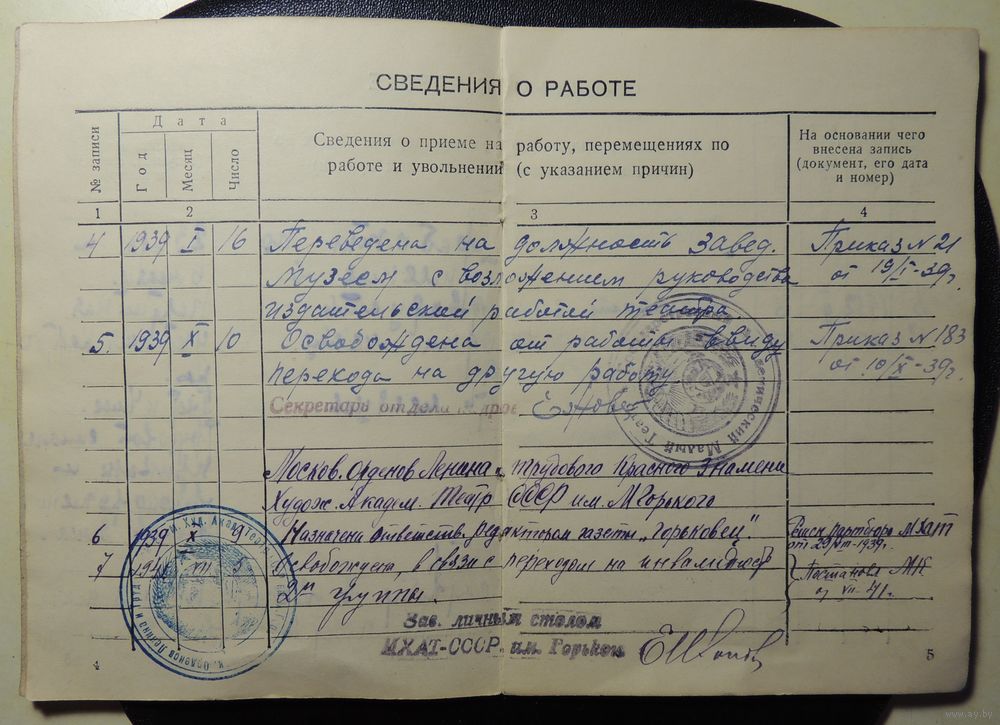 СВЕДЕНИЯ О РАБОТЕ
№ записи
Дата
Год
Месяц
Число
Сведения о приеме на работу, перемещениях по
работе и увольнении (с указанием причин)
На основании чего
внесена запись
(документ, его дата
и номер)
1 2 3 4
4 1939 I 16 Переведена на должность завед. Приказ № 21
музеем с возложением руководства от 19/I-39г.
издательской работой театра
5. 1939 X 10 Освобождена от работы ввиду Приказ № 183
перехода на другую работу от 10/X-39г.
Секретарь отдела кадров
Москов. Орденов Ленина и Трудового Красного Знамени
Худож. Академ. Театр СССР им. М. Горького
6 1939 X 9 Назначена ответств. редактором газеты "Горьковец".
партбюро МХАТ
7 XII Освобождена, в связи с переходом на инвалидность
2й группы.
Зав. личным столом
МХАТ-СССР, им. Горького
4
5
www.ay.by